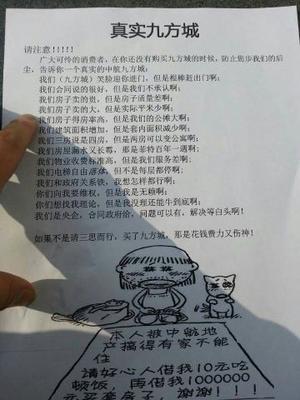 真实九方城
请注意!!!!!
广大可怜的消费者，在你还没有购买九方城的时候，防止您步我们的后
尘，告诉你一个真实的中航九方城：
我们《九方城》笑脸迎你进门，但是棍棒赶出门啊；
我们合同说的很好，但是我们不承认啊；
我们房子卖的贵，但是房子质量差啊；
我们房子卖的大，但是实际平米少啊；
我们房子得房率高，但是我们的公摊大啊；
我们建筑面积增加，但是套内面积减少啊；
我们三房说是四房，但是两房可以变公寓啊；
我们房屋漏水又长霉，那是菲特百年一遇啊；
我们物业收费标准高，但是我们服务差啊；
我们电梯自由落体，但不是每层都停啊；
我们和政府关系铁，我想怎样都行啊；
你们向我要维权，但是我是无赖啊；
你们想找我理论，但是我没理还能牛到底啊；
我们是央企，合同政府给，问题可以有，解决等白头啊！
如果不是请三思而行，买了九方城，那是花钱费力又伤神！
本人被中航地
产搞得有家不能
住
請好心人借我10元吃
顿饭，再借我1000000
元买套房子，謝謝!!!